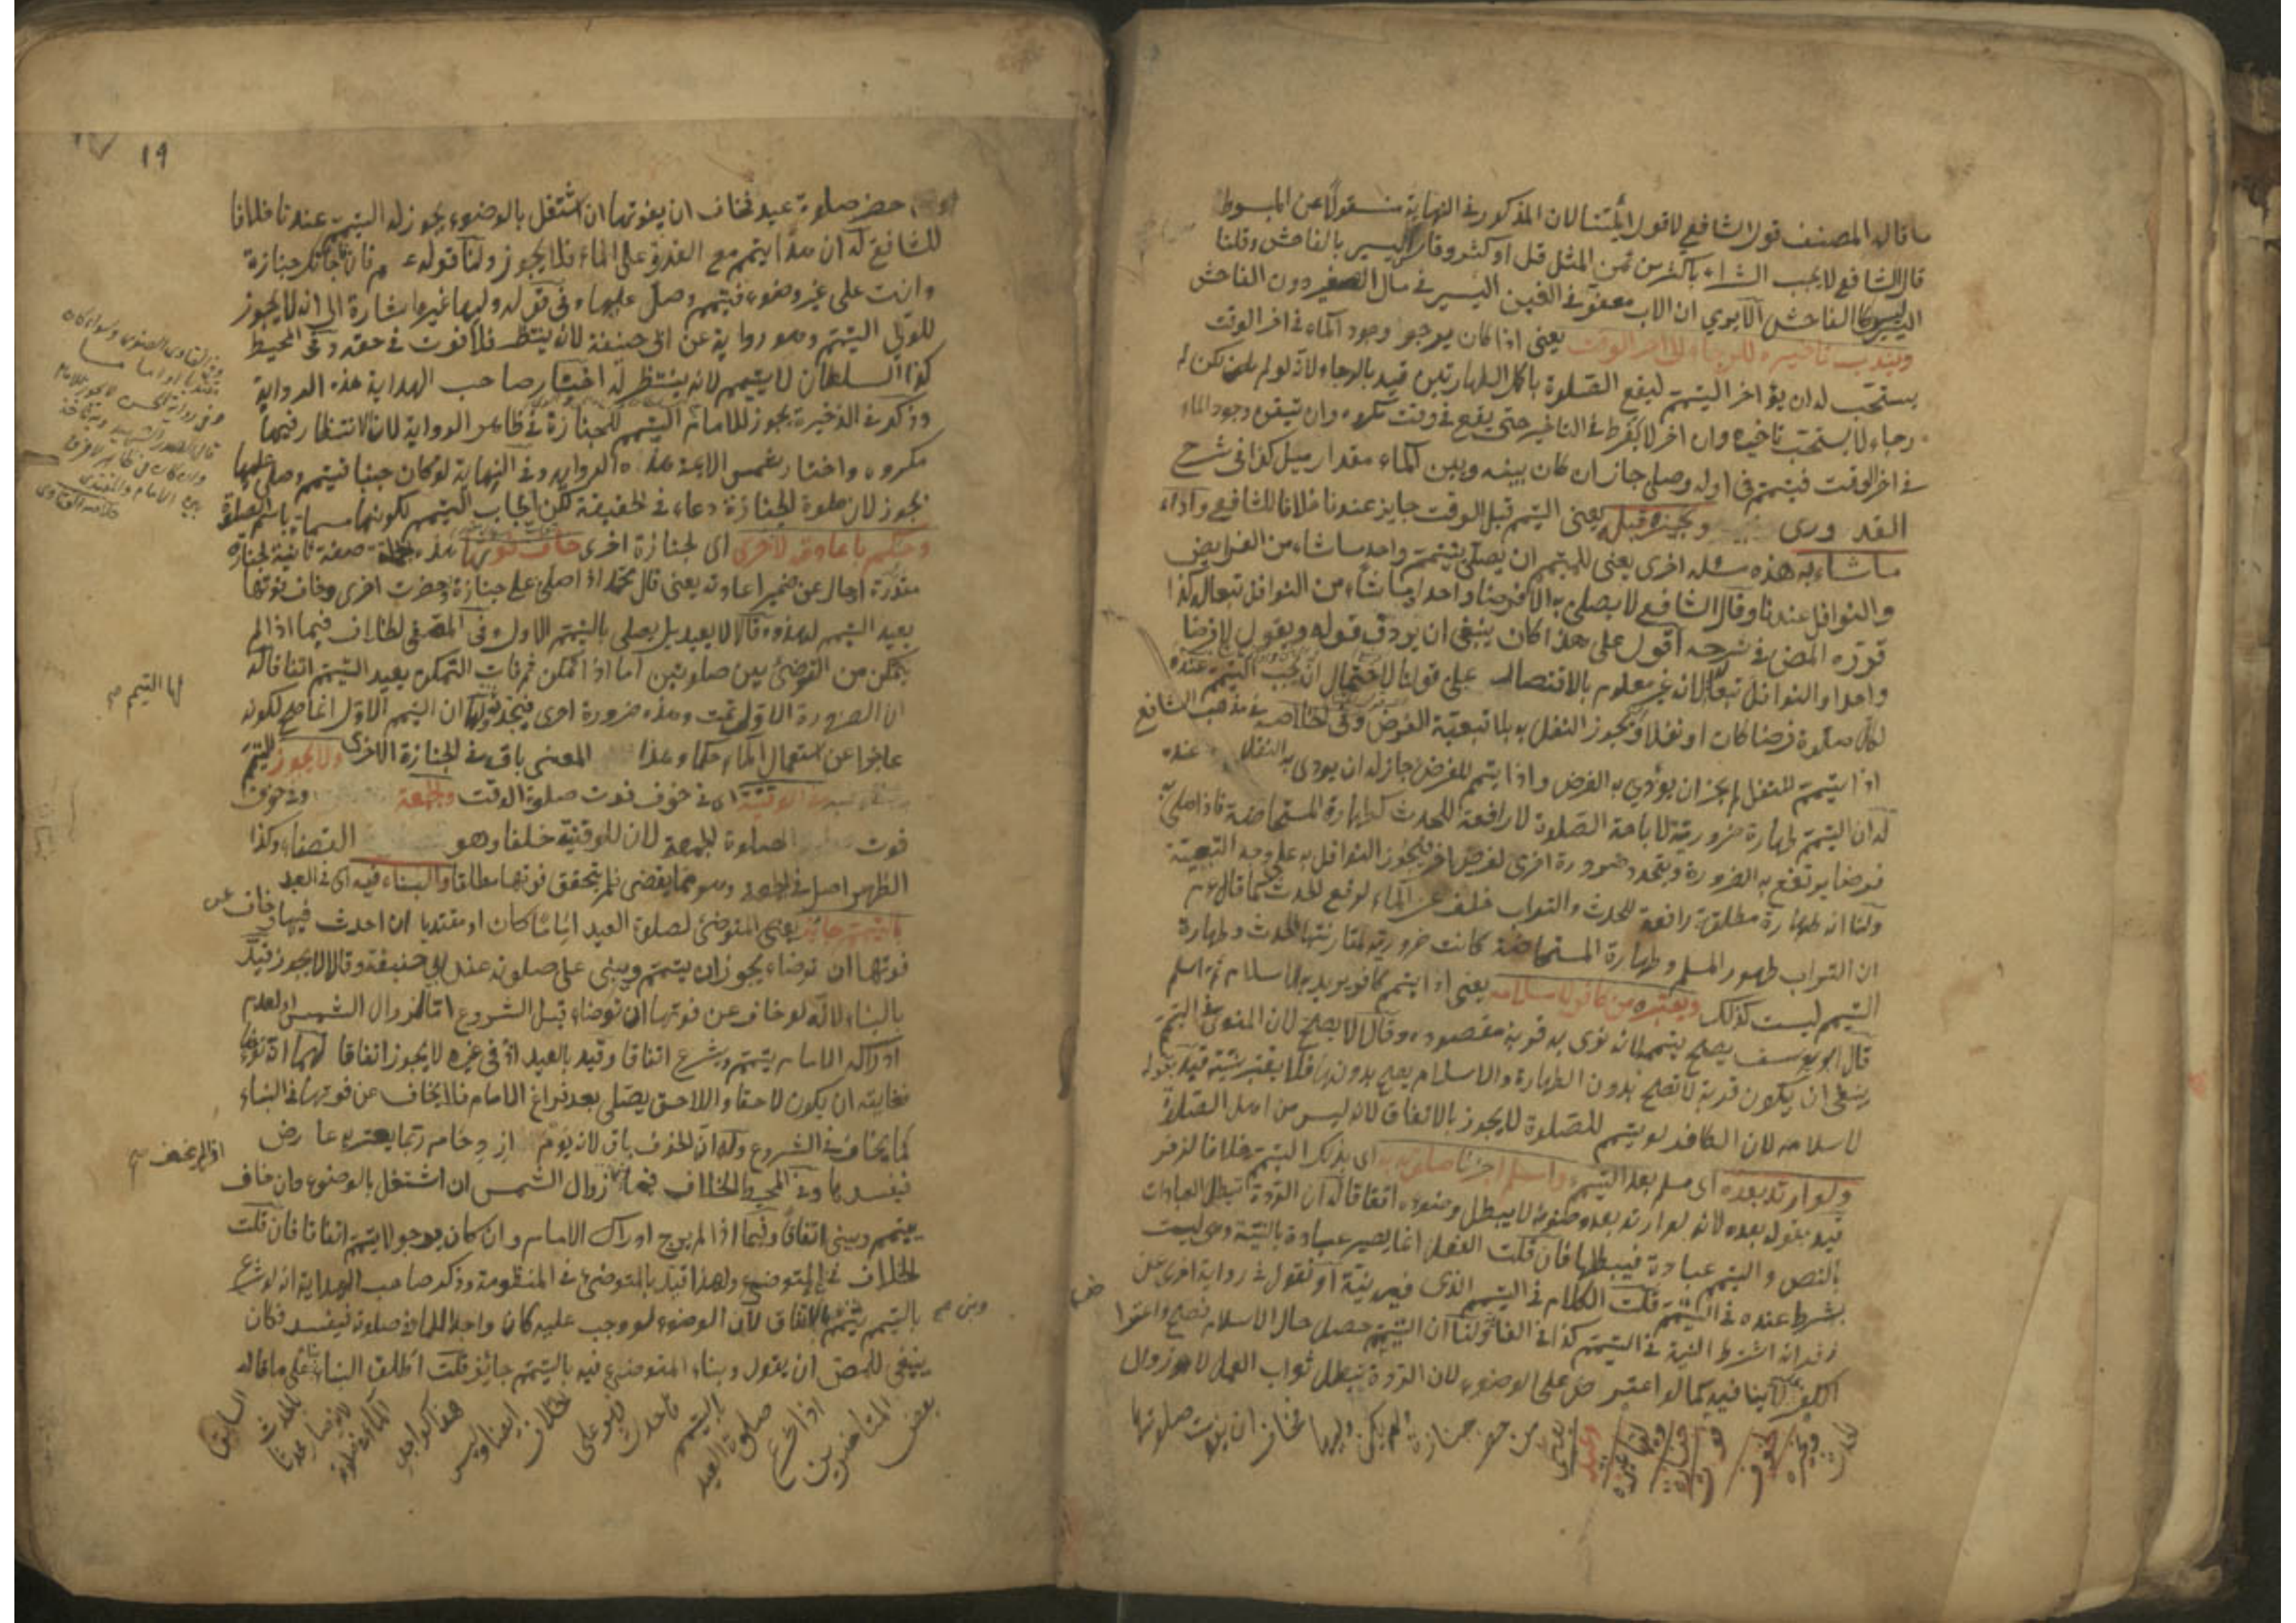 ما قاله المصنف قول الشافعي لا قول أئمتنا لان المذكور في النهاية منقولا عن المبسوط
قال الشافعي لا يجب الشراء باكثر من ثمن المثل قل او كثر وقاس اليسير بالفاحش وقلنا
اليسير كالفاحش ألا يري ان الاب معفو في الغبن اليسير في مال الصغير دون الفاحش
ويندب تاخيره للرجاء الى اخر الوقت يعني اذا كان يرجو وجود الماء في اخر الوقت
يستحب له ان يؤاخر التيمم ليقع الصلوة باكمل الطهارتين قيد بالرجاء لانه لو لم يكن له
رجاء لا يستحب تاخيره وان اخر لا يفرط في التاخير حتى يقع في وقت مكروه وان تيقن وجود الماء
في اخر الوقت فيتمم في اوله وصلى جاز ان كان بينه وبين الماء مقدار ميل كذا في شرح
القدوري ونجيزه قبله يعنى التيمم قبل الوقت جايز عندنا خلافا للشافعي واداء
ما شاء به هذه مسئلة اخرى يعنى للمتيمم ان يصلي بتيمم واحد ما شاء من الفرايض
والنوافل عندنا وقال الشافعي لا يصلى به الا فرضا واحدا وما شاء من النوافل تبعا له كذا
قرره المص في شرحه اقول على هذا كان ينبغى ان يردف قوله ويقول لا فرضا
واحدا والنوافل تبعا لانه غير معلوم بالاقتصار على قولنا لاحتمال انه يجب التيمم عنده
لكل صلوة فرضا كان او نفلا ويجوز النفل به بلا تبعية الفرض وفى الخلاصة في مذهب الشافعي
اذا تيمم للنفل لم يجز ان يؤدي به الفرض واذا تيمم للفرض جاز له ان يودى به النفل عنده
له ان التيمم طهارة ضرورية لاباحة الصلوة لا رافعة للحدث كطهارة المستحاضة فاذا صلى به
فرضا يرتفع به الضرورة ويتجدد ضرورة اخرى لفرض اخر فيجوز النوافل به على وجه التبعية
ولنا انه طهارة مطلقة رافعة للحدث والتراب خلف عن الماء لرفع الحدث كما قال عم
ان التراب طهور المسلم وطهارة المستحاضة كانت ضرورية لمقارنتها الحدث وطهارة
التيمم ليست كذلك ويعتبره من كافر لاسلامه يعنى اذا تيمم كافر يريد به الاسلام ثم اسلم
قال ابو يوسف يصح تيممه لانه نوى به قربة مقصودة وقالا لا يصح لان المنوى في التيمم
ينبغى ان يكون قربة لا تصح بدون الطهارة والاسلام يصح بدونها فلا يعتبر نيته قيد بقوله
لاسلامه لان الكافر لو تيمم للصلوة لا يجوز بالاتفاق لانه ليس من اهل الصلاة
ولو ارتد بعده اى مسلم بعد التيمم واسلم اجزنا صلوته به اى بذلك التيمم خلافا لزفر
قيد بقوله بعده لانه لو ارتد بعد وضوئه لا يبطل وضوءه اتفاقا له ان الردة تبطل العبادات
بالنص والتيمم عبادة فيبطلها فان قلت الفعل انما يصير عبادة بالنية وهى ليست
بشرط عنده في التيمم قلت الكلام في التيمم الذى فيه نية او نقول في رواية اخرى عن
زفر انه اشترط النية في التيمم كذا في الفا ولنا ان التيمم حصل حال الاسلام فصح واعترا
الكفر لا ينافيه كما لو اعترض على الوضوء لان الردة تبطل ثواب العمل لا زوال
الحدث ونجيزه لخوف فوت جنازة وليها غيره وعيد يعنى من حضر جنازة ولم يكن وليها فخاف ان يفوت صلوتها
19
او حضر صلوة عيد فخاف ان يفوتها ان اشتغل بالوضوء يجوز له التيمم عندنا خلافا
للشافعي له ان هذا تيمم مع القدرة على الماء فلا يجوز ولنا قوله عم فان فاجأتك جنازة
وانت على غير وضوء فتيمم وصل عليها وفى قوله وليها غيره اشارة الى انه لا يجوز
للولي التيمم وهو رواية عن ابى حنيفة لانه ينتظر فلا فوت في حقه وفى المحيط
كذا السلطان لا يتيمم لانه ينتظر له اختار صاحب الهداية هذه الرواية
وذكر في الذخيرة يجوز للامام التيمم للجنازة في ظاهر الرواية لان الانتظار فيها
مكروه واختار شمس الائمة هذه الرواية وفى النهاية لو كان جنبا فتيمم وصلى عليها
يجوز لان صلوة الجنازة دعاء في الحقيقة لكن ايجاب التيمم لكونها مسماة باسم الصلوة
وحكم باعادته لاخرى اى لجنازة اخرى خاف فوتها هذه جملة صفة ثانية لجنازة
مقدرة او حال عن ضمير اعادته يعنى قال محمد اذا صلى على جنازة وحضرت اخرى وخاف فوتها
يعيد التيمم لهذه وقالا لا يعيد بل يصلى بالتيمم الاول وفى المصفى الخلاف فيما اذا لم
يتمكن من التوضئ بين صلوتين اما اذا تمكن ثم فات التمكن يعيد التيمم اتفاقا له
ان الضرورة الاولى تمت وهذه ضرورة اخرى فيتجدد لها ولهما ان التيمم الاول انما صح لكونه
عاجزا عن استعمال الماء حكما وهذا المعنى باق في الجنازة الاخرى ولا يجوز التيمم
الوقتية اى في خوف فوت صلوة الوقت والجمعة وفى خوف
فوت صلوة الجمعة لان للوقتية خلفا وهو القضاء وكذا
الظهر اصل في الجمعة وهو مما يقضى فلم يتحقق فوتها مطلقا والبناء فيه اى في العيد
بالتيمم جائز يعنى المتوضئ لصلوة العيد اماما كان او مقتديا ان احدث فيها وخاف عن
فوتها ان توضاء يجوز ان يتيمم ويبنى على صلوته عند ابي حنيفة وقالا لا يجوز قيد
بالبناء لانه لو خاف عن فوتها ان توضاء قبل الشروع اما لزوال الشمس او لعدم
ادراك الامام يتيمم ويشرع اتفاقا وقيد بالعيد اذ في غيره لا يجوز اتفاقا لهما انه
فغايته ان يكون لاحقا واللاحق يصلى بعد فراغ الامام فلا يخاف عن فوتها في البناء
كما يخاف في الشروع وله ان الخوف باق لانه يوم ازدحام ربما يعتريه عارض
فيفسدها وفى المحيط الخلاف فيما زوال الشمس ان اشتغل بالوضوء وان خاف
يتيمم ويبني اتفاقا وفيما اذا لم يرج ادراك الامام وان كان يرجو لا يتيمم اتفاقا فان قلت
الخلاف في المتوضئ ولهذا قيد بالمتوضئ في المنظومة وذكر صاحب الهداية انه لو شرع
بالتيمم يتيمم بالاتفاق لان الوضوء لو وجب عليه كان واجدا للماء في صلوته فيفسد فكان
ينبغى للمص ان يقول وبناء المتوضئ فيه بالتيمم جائز قلت اطلق البناء على ما قاله
بعض المتاخرين اذا شرع صلوة العيد بالتيمم فاحدث فهو على الخلاف ايضا وليس هذا كواجد الماء في خلال صلوة
لها التيمم صح
اذا لم يخف صح
وبنى صح